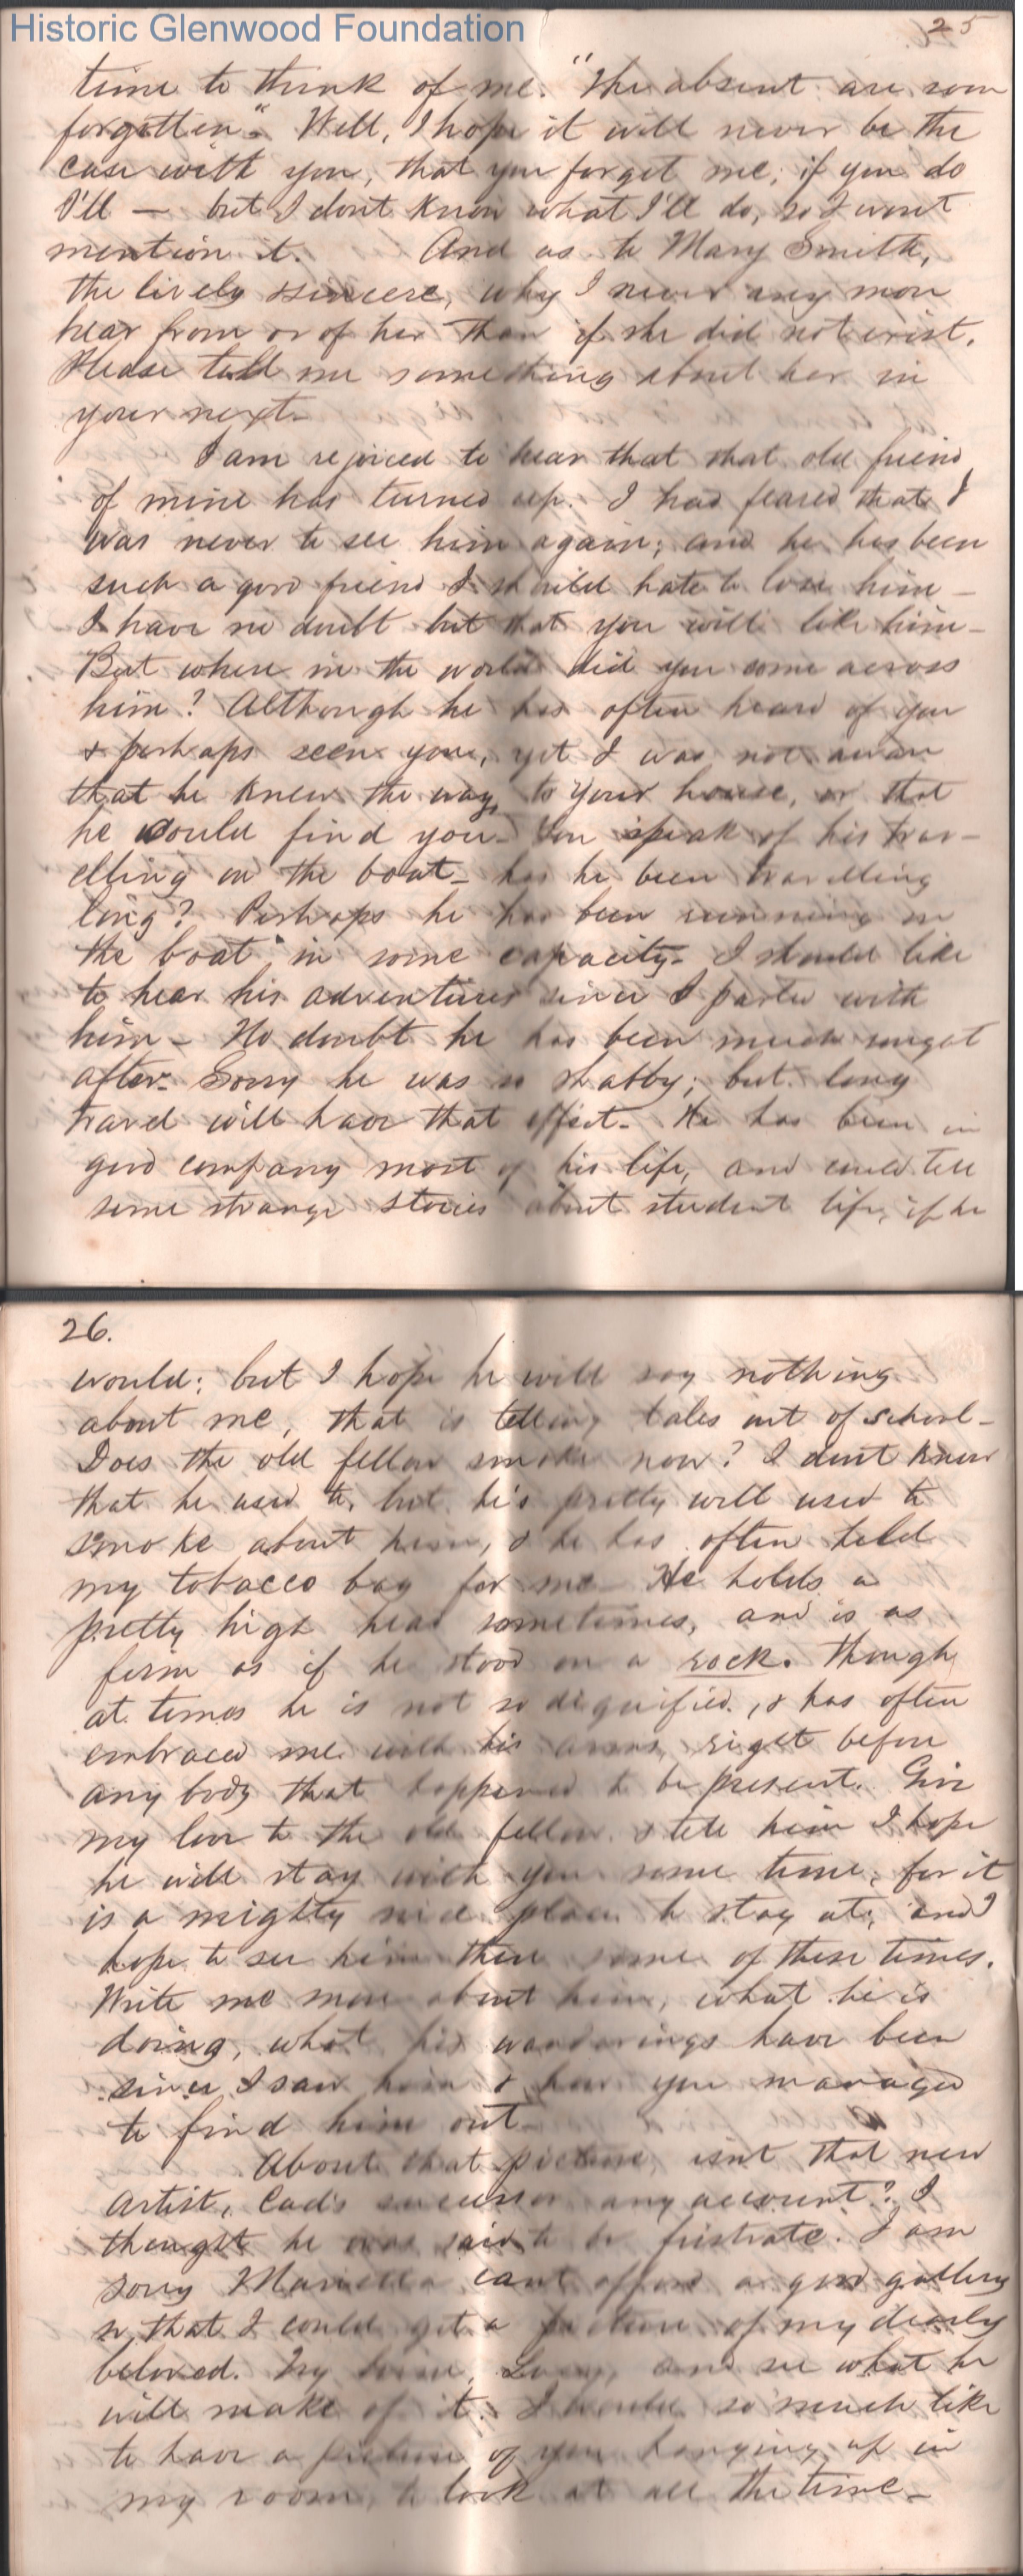 Historic Glenwood Foundation
25
time to think of me. "The absent are soon
forgotten". Well, I hope it will never be the
case with you, that you forget me; if you do
I'll — but I dont know what I'll do, so I wont
mention it. And as to Mary Smith,
the lively sincere, why I never any more
hear from or of her than if she did not exist.
Please tell me something about her in
your next—
I am rejoiced to hear that that old friend
of mine has turned up. I had feared that I
was never to see him again; and he has been
such a good friend I should hate to lose him—
I have no doubt but that you will like him—
But where in the world did you come across
him? Although he has often heard of you
& perhaps seen you, yet I was not aware
that he knew the way to your house, or that
he could find you— You speak of his trav-
elling on the boat— has he been travelling
long? Perhaps he has been running on
the boat in some capacity— I should like
to hear his adventures since I parted with
him— No doubt he has been much sought
after— Sorry he was so shabby; but long
travel will have that effect— He has been in
good company most of his life, and could tell
some strange stories about student life, if he
26.
would; but I hope he will say nothing
about me, that is telling tales out of school—
Does the old fellow smoke now? I dont know
that he used to, but he's pretty well used to
smoke about him, & he has often held
my tobacco bag for me— He holds a
pretty high head sometimes, and is as
firm as if he stood on a rock. Though
at times he is not so dignified, & has often
embraced me with his arms right before
any body that happened to be present. Give
my love to the old fellow & tell him I hope
he will stay with you some time, for it
is a mighty nice place to stay at; and I
hope to see him there some of these times.
Write me more about him, what he is
doing, what his wanderings have been
since I saw him & how you managed
to find him out—
About that picture, isnt that new
Artist, Cad's successor any account? I
thought he was said to be firstrate. I am
sorry Marietta cant afford a good gallery
so that I could get a picture of my dearly
beloved. Try him, and see what he
will make of it. I would so much like
to have a picture of you hanging up in
my room, to look at all the time—